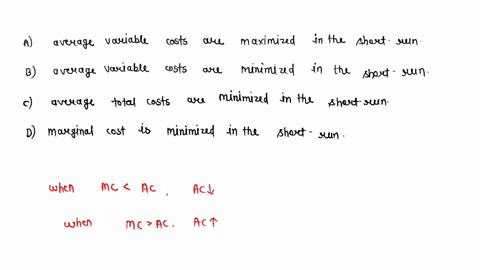 A) average variable costs are maximized in the short-run.
B) average variable costs are minimized in the short-run.
C) average total costs are minimized in the short run.
D) marginal cost is minimized in the short-run.
when MC < AC, AC↓
when MC > AC. AC↑